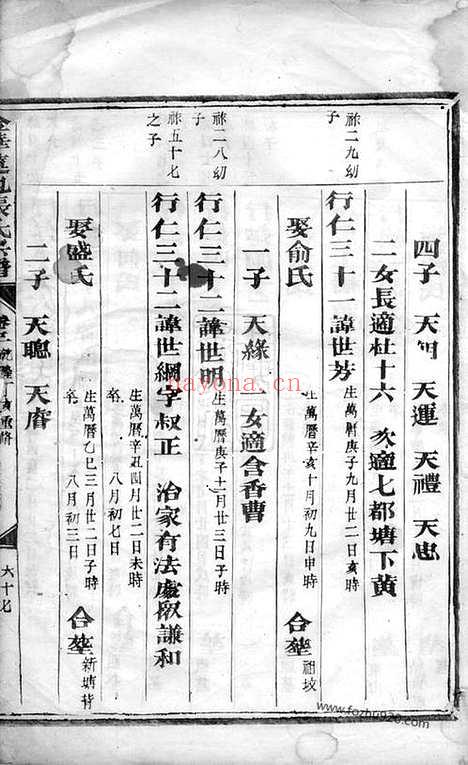 四子 天 天運 天禮 天忠
二女長適杜十六 次適七都塘下黃
祢二九幼子
行仁三十一諱世芳 生萬曆庚子九月廿二日亥時
娶俞氏 生萬曆辛亥十月初九日申時 合塟 祖坟
一子 天緣 一女適含香曹
祢二八幼子
行仁三十二諱世明 生萬曆庚子十二月廿三日子時
祢五十七之子
行仁三十二諱世綱字叔正 治家有法處叔謙和
生萬曆辛丑四月廿二日未時
卒 八月初七日
娶盛氏 生萬曆乙巳三月廿二日子時
卒 八月初三日 合塟 新塘背
二子 天聰 天𢈪
張氏宗譜
六十七
nayona.cn
www.fozhu920.com